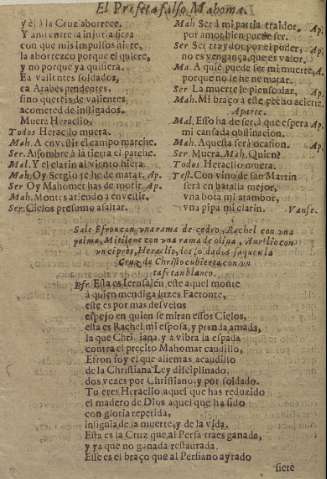 El Profeta falso Mahoma.
y el à la Cruz aborrece.
Y assi entre la injuria fiera
con que mis impulsos hiere,
la aborrezco porque el quiere,
y no porque yo quisiera.
Ea valientes soldados,
ea Arabes pendentes,
sino quereis de valientes
acometed de instigados.
Muera Heraclio.
Todos Heraclio muera.
Mah. A envestir el campo marche.
Ser. Assombre à la tierra el parche.
Mal. Y el clarin al viento hiera.
Mah. Oy Sergio te he de matar. Ap.
Ser Oy Mahomet has de morir. Ap.
Mah. Montes atiendo à envestir.
Ser. Cielos presumo assaltar.
Mah Serà mi parda traidor, Ap.
por ambos puede ser.
Ser Ser traydor por el poder, Ap.
no es vengança, que es valor.
Ma. A quien puede ser mi muerte, A.
porque no le he de matar.
Ser La muerte le pienso dar, Ap.
Mah. Mi braço a este pecho acierte,
Aparte.
Mal. Esso ha de ser à que espera Ap.
mi cansada obstinacion.
Mah. Aquesta serà ocasion. Ap.
Ser Muera. Mah. Quien?
Todos Heraclio muera.
Test. Con vino de san Martin
serà en batalla mejor,
vna bota mi atambor,
vna pipa mi clarin. Vanse.
Sale Efron con vna rama de cedro, Rachel con vna
palma, Mitilene con vna rama de oliua, Aurelio con
vn cipres, Heraclio, los soldados saquen la
Cruz de Christo cubierta con vn
tafetan blanco.
Efr. Esta es Ierusalèn, este aquel monte
à quien mendiga luzes Faetonte,
este es por mas desvelos
espejo en quien se miran essos Cielos,
esta es Rachel mi esposa, y prenda amada,
la que Christiana, y à vibra la espada
contra el precito Mahomar caudillo,
Efron soy el que aliemas acaudillo
de la Christiana Ley disciplinado,
dos vezes por Christiano, y por soldado.
Tu eres Heraclio aquel que has reduzido
el madero de Dios aquel que ha sido
con gloria repetida,
insignia de la muerte, y de la vida.
Esta es la Cruz que ai Persia traes ganada,
y ya que no ganada restaurada.
Esse es el braço que al Persiano ayrado
siete